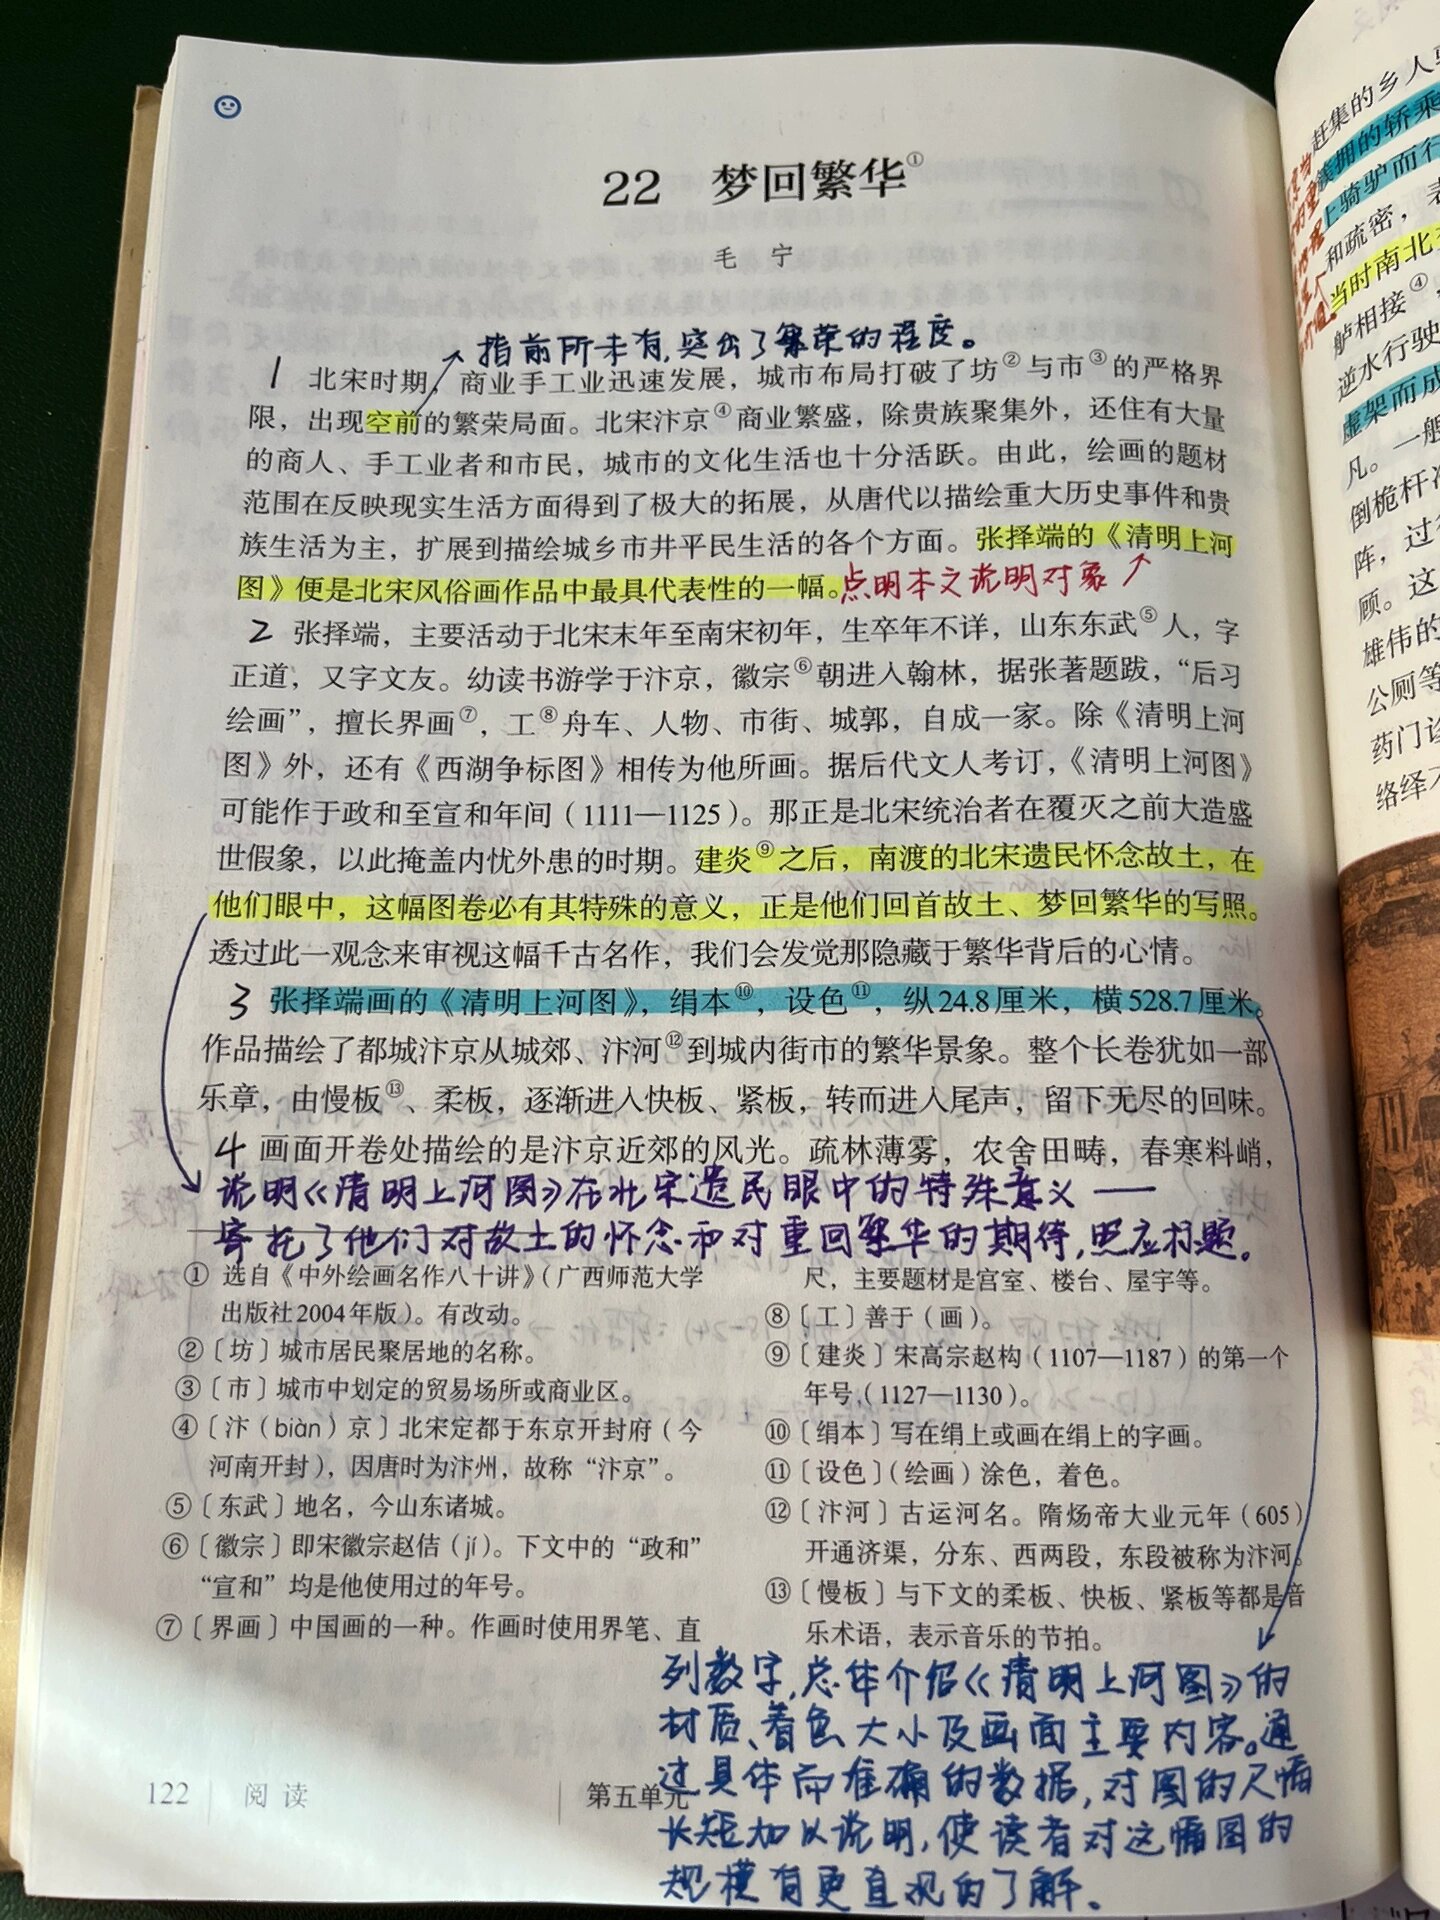 22 梦回繁华①
毛 宁
指前所未有,突出了繁荣的程度。
1 北宋时期,商业手工业迅速发展,城市布局打破了坊②与市③的严格界
限,出现空前的繁荣局面。北宋汴京④商业繁盛,除贵族聚集外,还住有大量
的商人、手工业者和市民,城市的文化生活也十分活跃。由此,绘画的题材
范围在反映现实生活方面得到了极大的拓展,从唐代以描绘重大历史事件和贵
族生活为主,扩展到描绘城乡市井平民生活的各个方面。张择端的《清明上河
图》便是北宋风俗画作品中最具代表性的一幅。点明本文说明对象
2 张择端,主要活动于北宋末年至南宋初年,生卒年不详,山东东武⑤人,字
正道,又字文友。幼读书游学于汴京,徽宗⑥朝进入翰林,据张著题跋,“后习
绘画”,擅长界画⑦,工⑧舟车、人物、市街、城郭,自成一家。除《清明上河
图》外,还有《西湖争标图》相传为他所画。据后代文人考订,《清明上河图》
可能作于政和至宣和年间(1111—1125)。那正是北宋统治者在覆灭之前大造盛
世假象,以此掩盖内忧外患的时期。建炎⑨之后,南渡的北宋遗民怀念故土,在
他们眼中,这幅图卷必有其特殊的意义,正是他们回首故土、梦回繁华的写照。
透过此一观念来审视这幅千古名作,我们会发觉那隐藏于繁华背后的心情。
3 张择端画的《清明上河图》,绢本⑩,设色⑪,纵24.8厘米,横528.7厘米。
作品描绘了都城汴京从城郊、汴河⑫到城内街市的繁华景象。整个长卷犹如一部
乐章,由慢板⑬、柔板,逐渐进入快板、紧板,转而进入尾声,留下无尽的回味。
4 画面开卷处描绘的是汴京近郊的风光。疏林薄雾,农舍田畴,春寒料峭,
说明《清明上河图》在北宋遗民眼中的特殊意义——
寄托了他们对故土的怀念和对重回繁华的期待,照应标题。
① 选自《中外绘画名作八十讲》(广西师范大学
出版社2004年版)。有改动。
②〔坊〕城市居民聚居地的名称。
③〔市〕城市中划定的贸易场所或商业区。
④〔汴(biàn)京〕北宋定都于东京开封府(今
河南开封),因唐时为汴州,故称“汴京”。
⑤〔东武〕地名,今山东诸城。
⑥〔徽宗〕即宋徽宗赵佶(jí)。下文中的“政和”
“宣和”均是他使用过的年号。
⑦〔界画〕中国画的一种。作画时使用界笔、直
尺,主要题材是宫室、楼台、屋宇等。
⑧〔工〕善于(画)。
⑨〔建炎〕宋高宗赵构(1107—1187)的第一个
年号,(1127—1130)。
⑩〔绢本〕写在绢上或画在绢上的字画。
⑪〔设色〕(绘画)涂色,着色。
⑫〔汴河〕古运河名。隋炀帝大业元年(605)
开通济渠,分东、西两段,东段被称为汴河。
⑬〔慢板〕与下文的柔板、快板、紧板等都是音
乐术语,表示音乐的节拍。
列数字,总体介绍《清明上河图》的
材质、着色大小及画面主要内容。通
过具体而准确的数据,对图的尺幅
长短加以说明,使读者对这幅图的
规模有更直观的了解。
122 阅读
第五单元
赶集的乡人
簇拥的轿乘
上骑驴而行
和疏密,
当时南北
舻相接④,
逆水行驶
虚架而成
凡。一般
倒桅杆
阵,过
顾。这
雄伟的
公厕等
药门诊
络绎